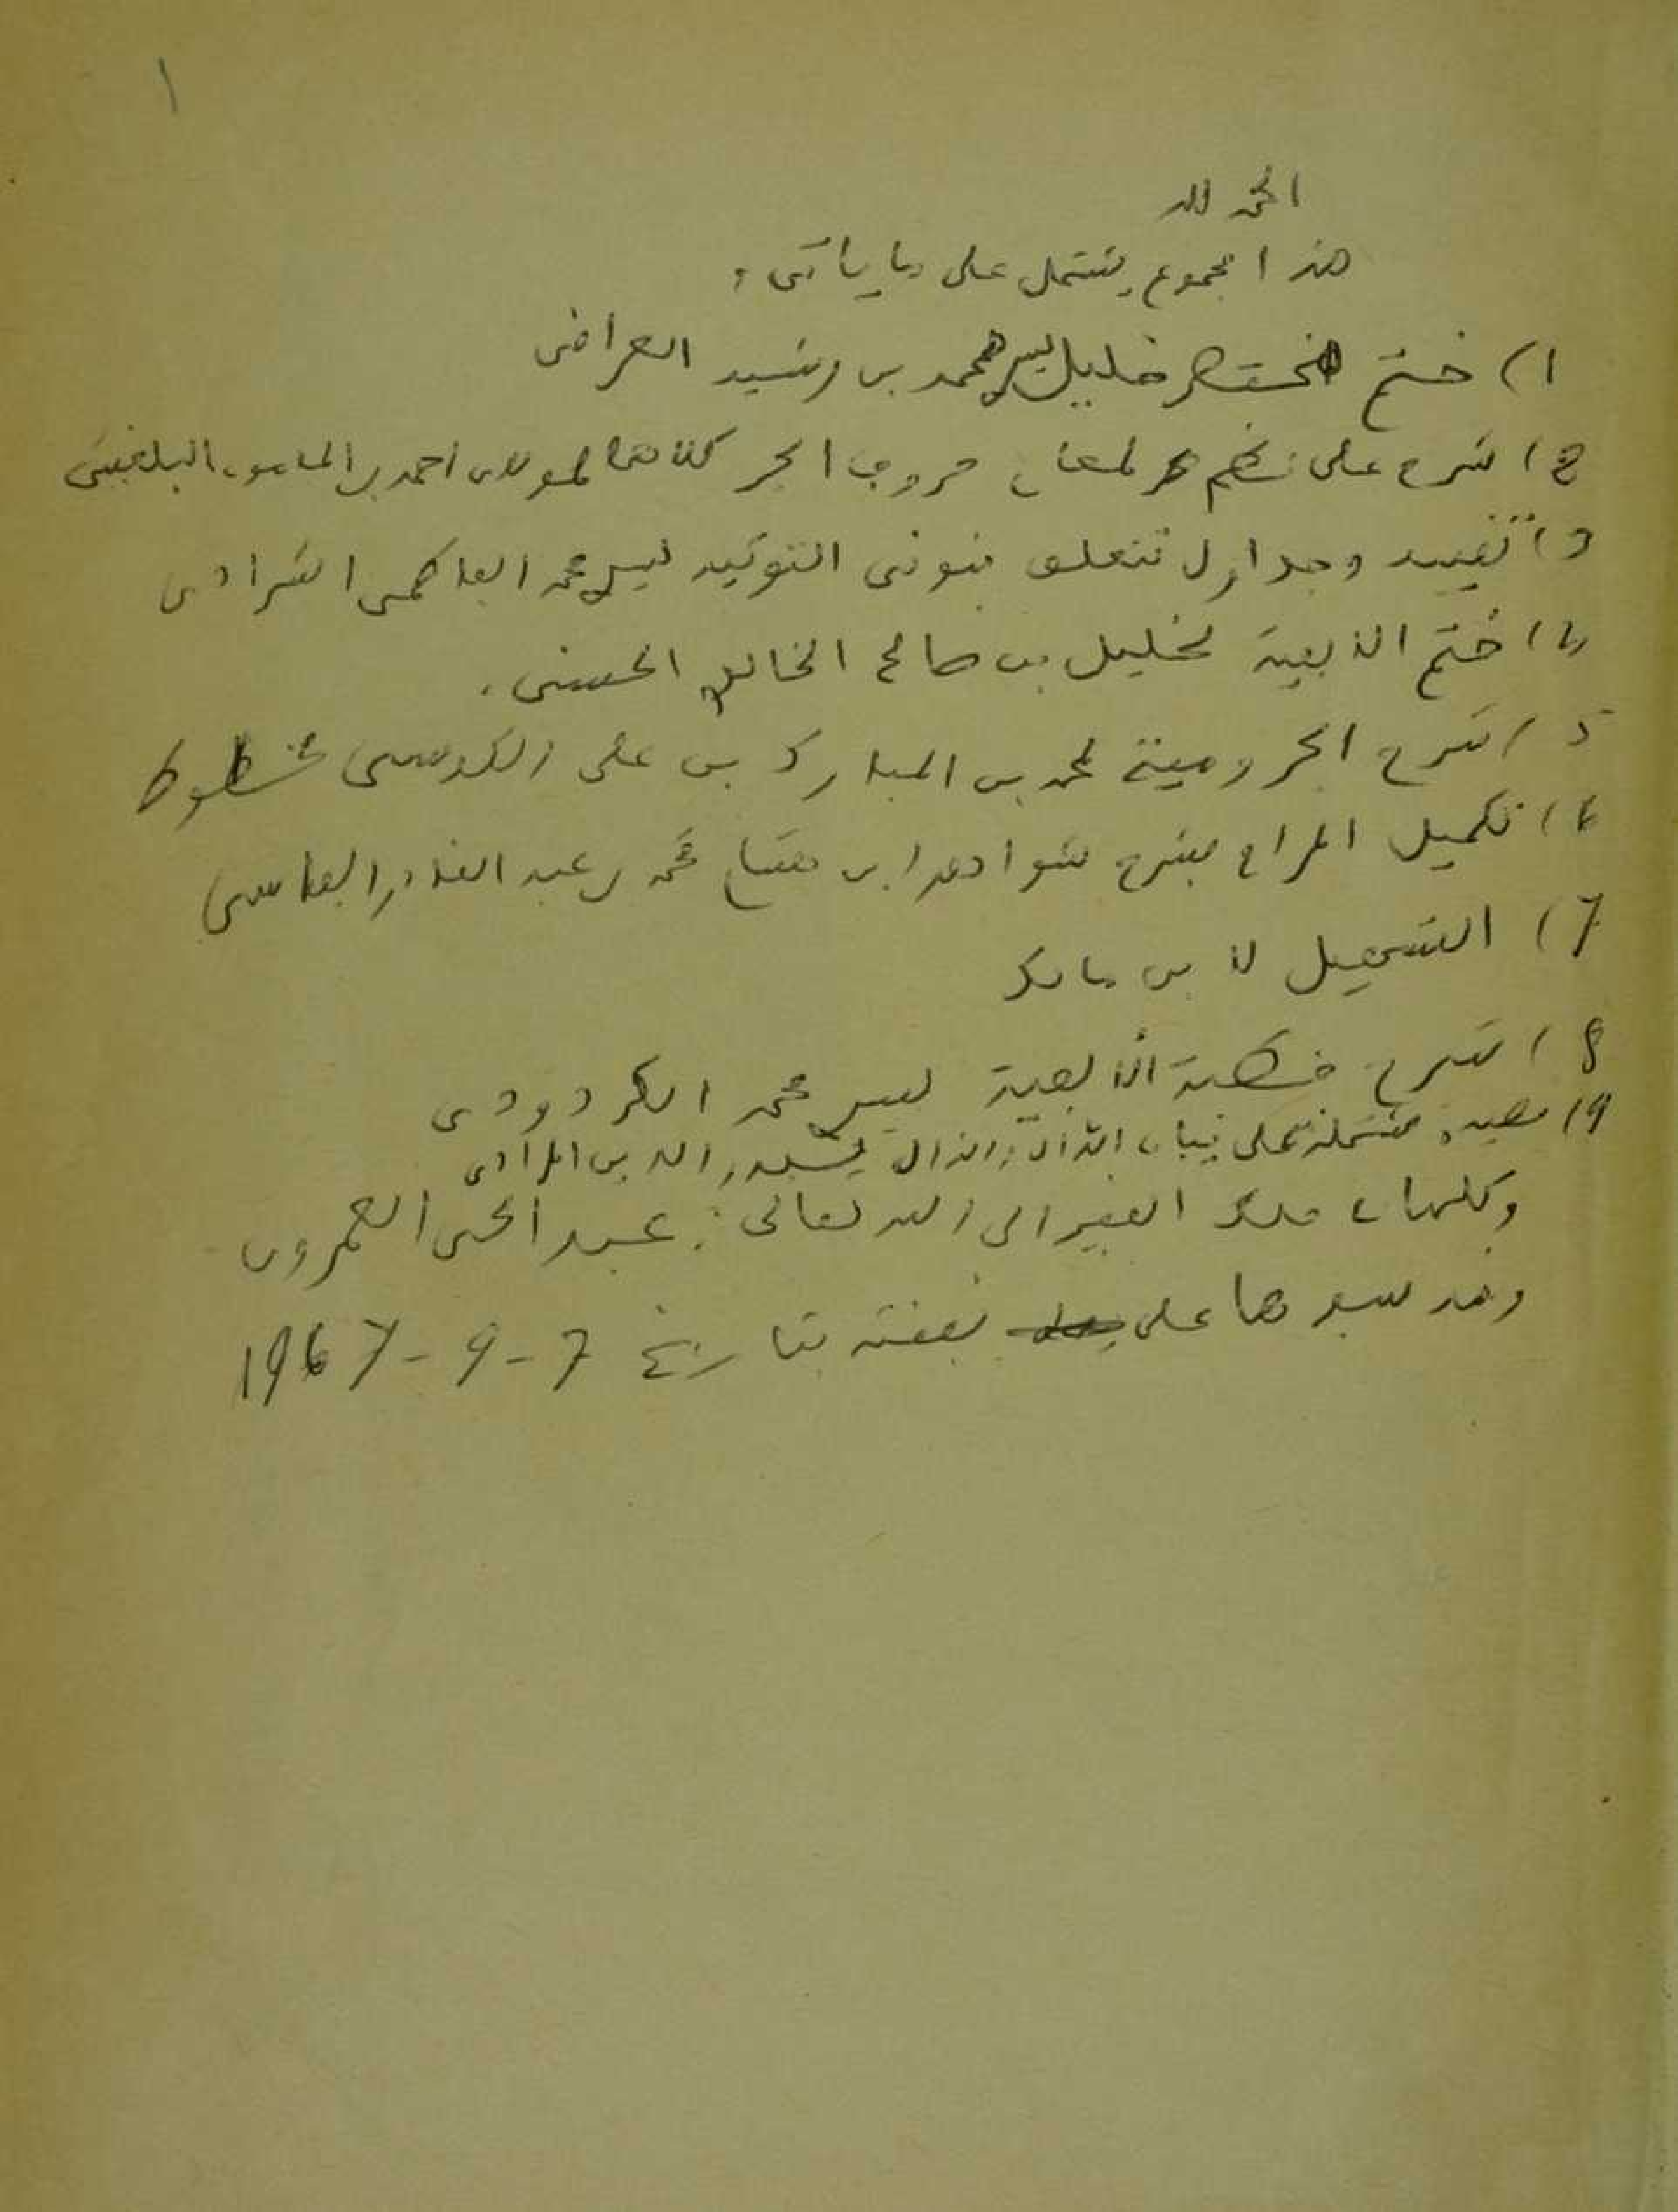 ١
الحمد لله
هذا المجموع يشتمل على ما يأتي :
1) ختم المختصر خليل لسيدي محمد بن رشيد العراقي
2) شرح على نظم لمعاني حروف الجر كلاهما لمولاي احمد بن المامون البلغيثي
3) تقييد وجداول تتعلق بنوني التوكيد لسيدي محمد الفاطمي الشرادي
4) ختم الالفية لخليل بن صالح الخالدي الحسني .
5) شرح الجرومية لمحمد بن المبارك بن علي مخطوط
6) تكميل المرام بشرح شواهد ابن هشام محمد بن عبد القادر الفاسي
7) التسهيل لابن مالك
8) شرح خطبة الألفية لسيدي محمد الكردودي
9) قصيدة مشتملة على الدال والذال لبدر الدين المرادي
وكلها في ملك الفقير الى الله تعالى : عبد الحي العمروي
وقد سفرها على نفقته بتاريخ 7 - 9 - 1967